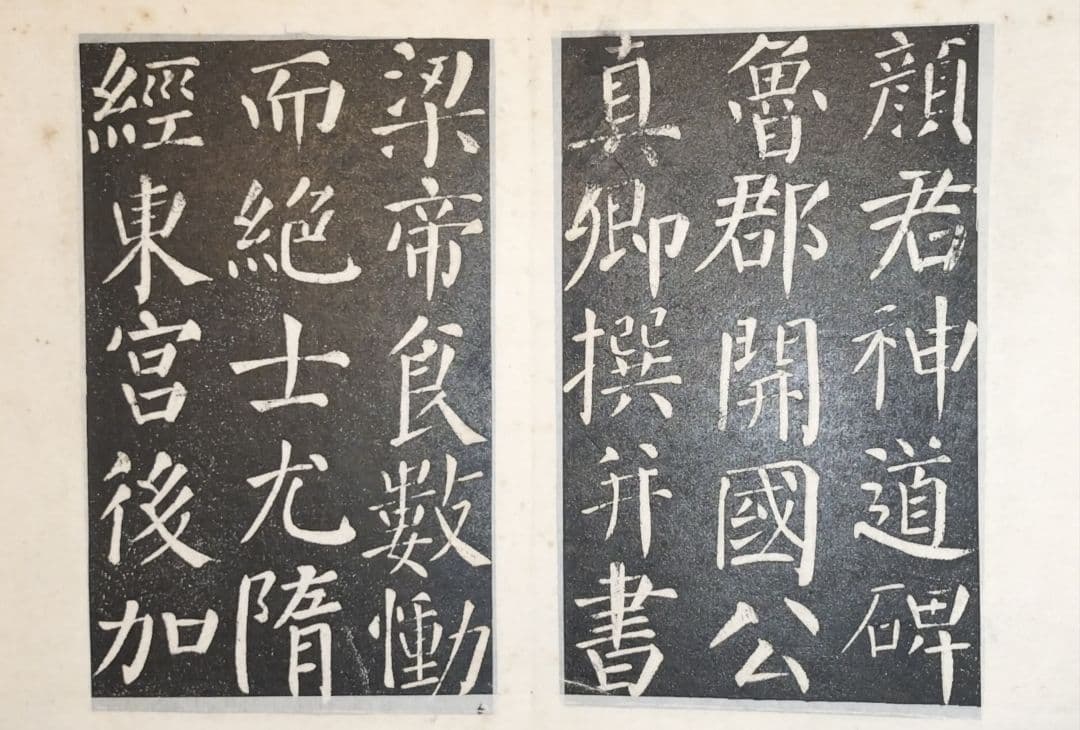 顔君神道碑
魯郡開國公
真卿撰并書
梁帝食數慟
而絶士尤隋
經東宮後加